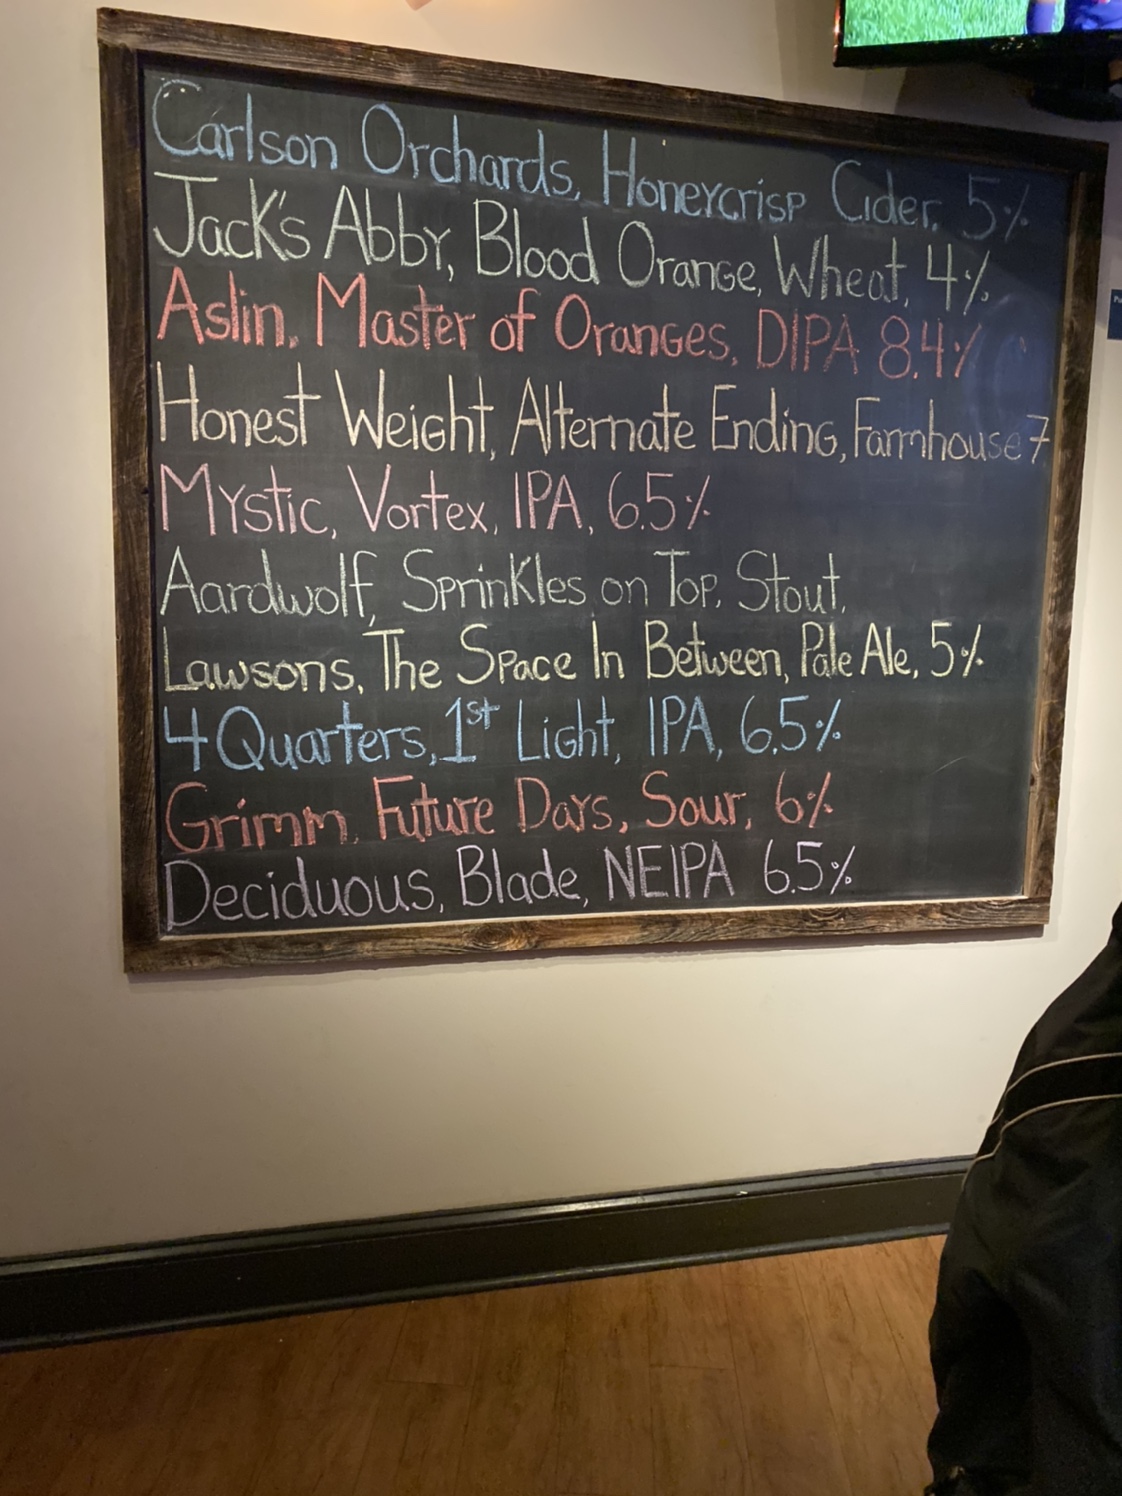 Carlson Orchards, Honeycrisp Cider, 5%
Jack's Abby, Blood Orange, Wheat, 4%
Aslin, Master of Oranges, DIPA 8.4%
Honest Weight, Alternate Ending, Farmhouse 7
Mystic, Vortex, IPA, 6.5%
Aardwolf, Sprinkles on Top, Stout,
Lawsons, The Space In Between, Pale Ale, 5%
4 Quarters, 1st Light, IPA, 6.5%
Grimm, Future Days, Sour, 6%
Deciduous, Blade, NEIPA 6.5%